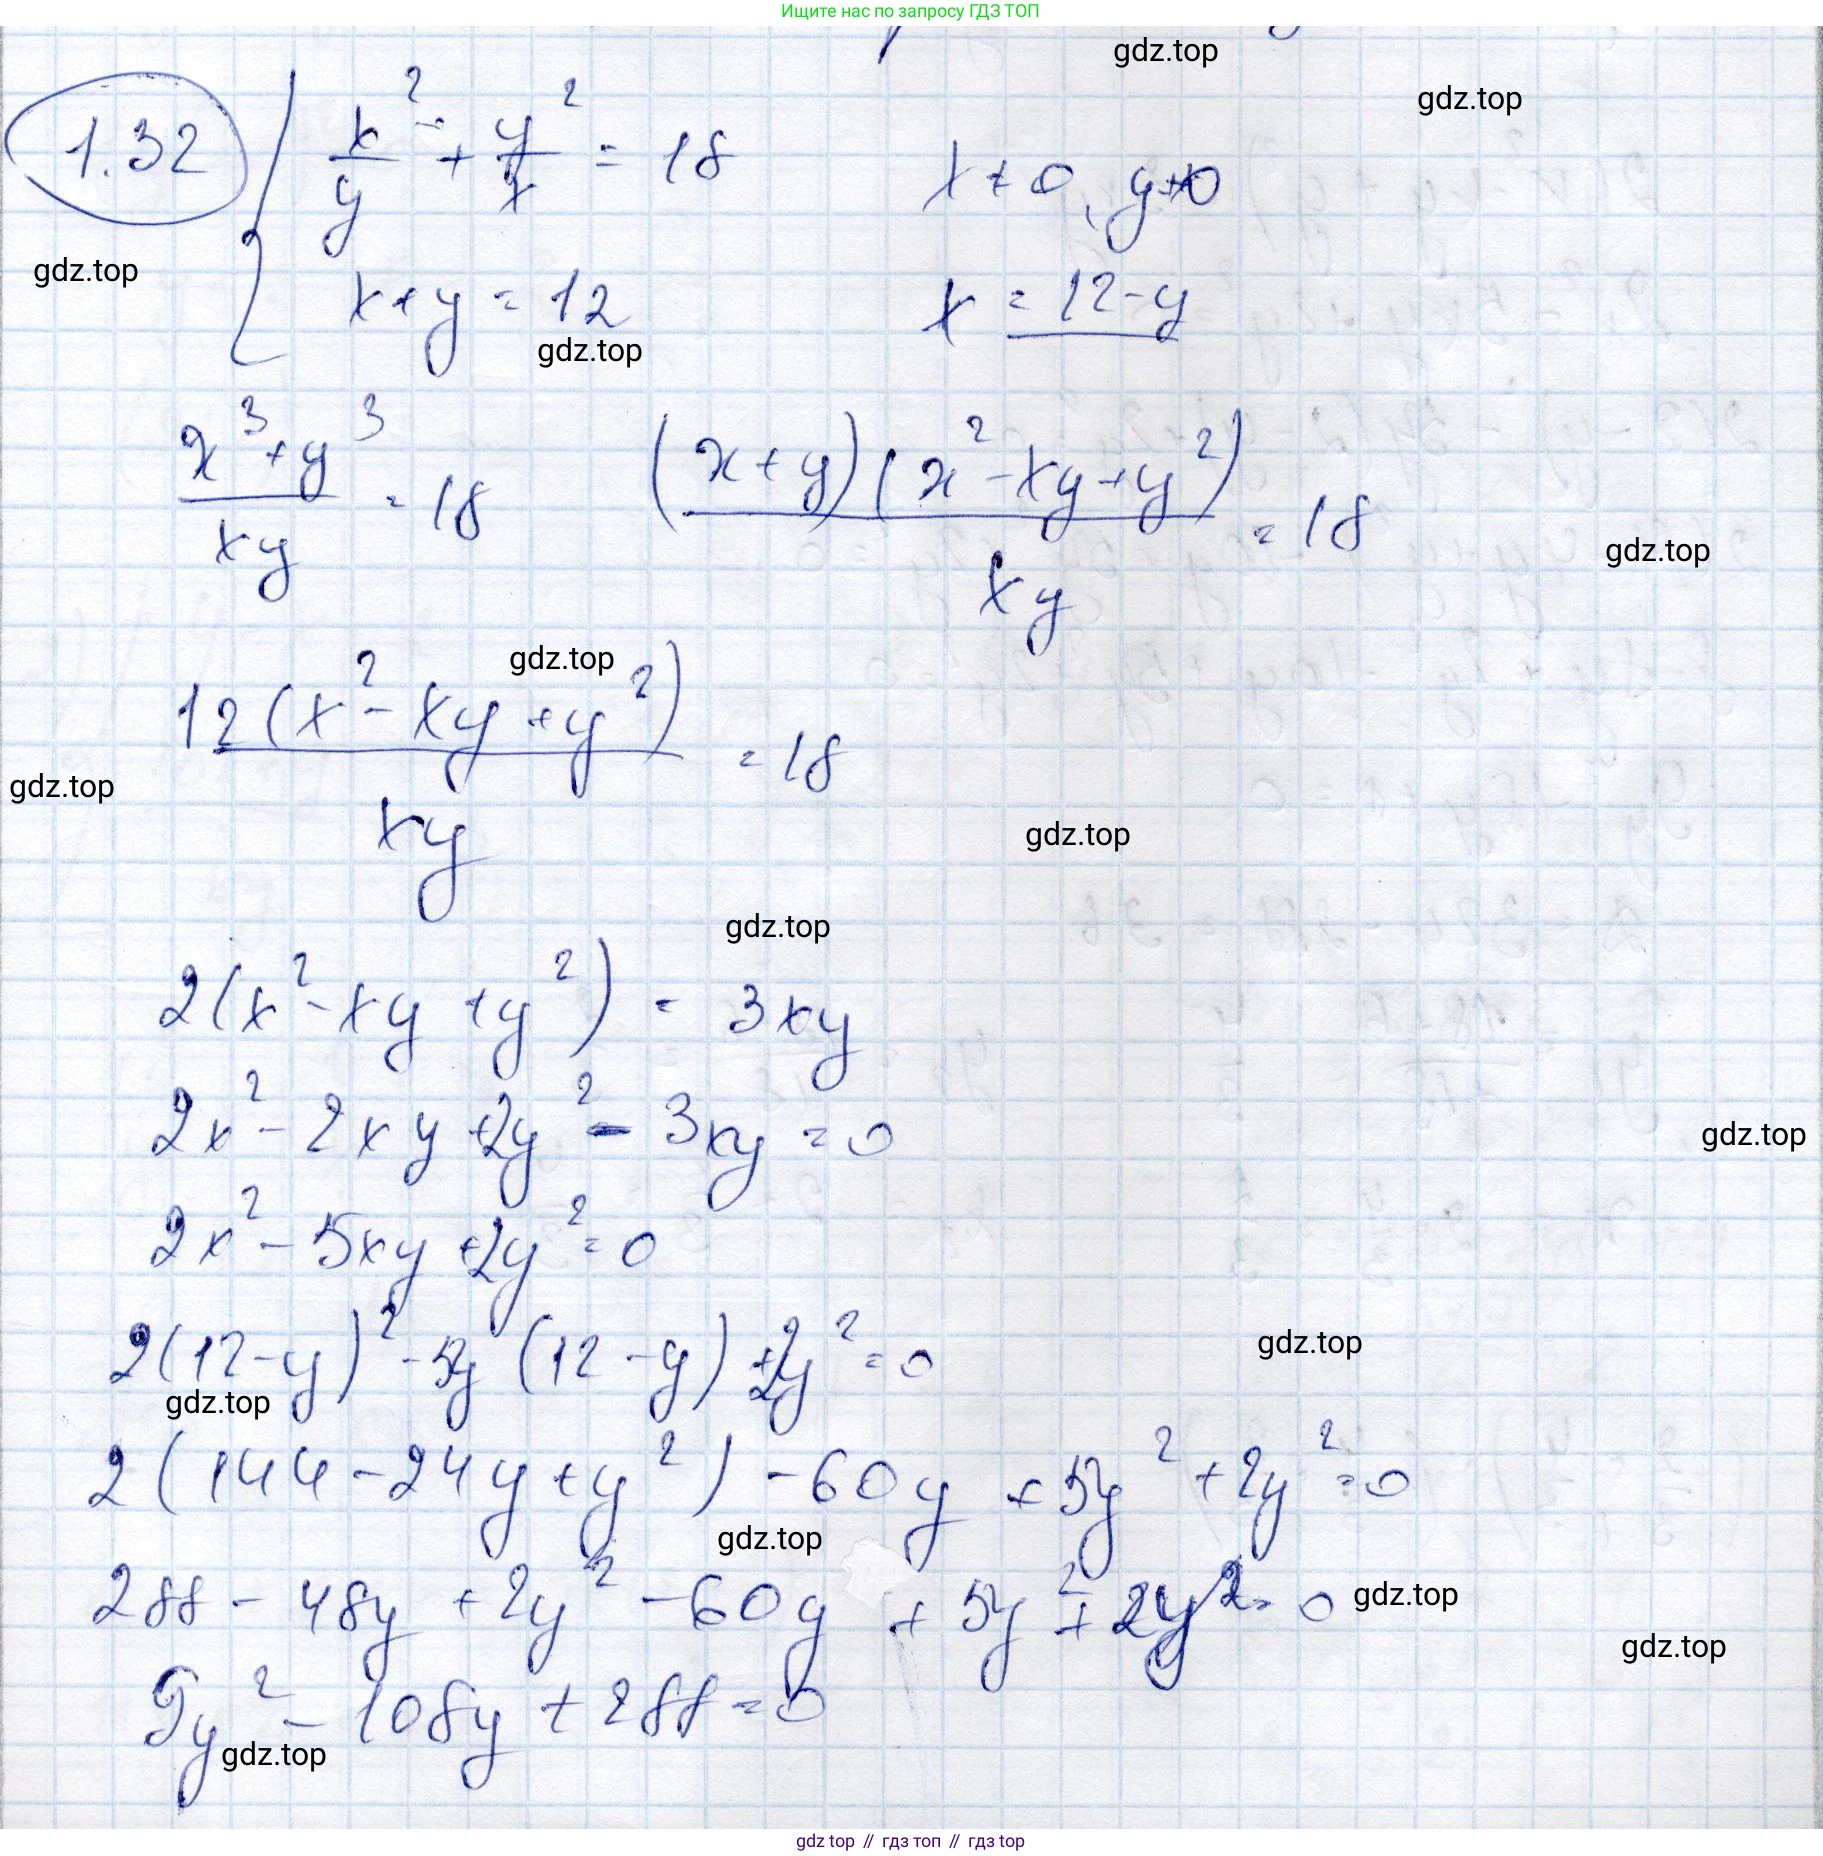 Ищите нас по запросу ГДЗ ТОП
gdz.top
gdz.top
1.32 { x²/y + y²/x = 18 x ≠ 0, y ≠ 0
gdz.top
x + y = 12 x = 12 - y
gdz.top
(x³ + y³)/(xy) = 18 ((x + y)(x² - xy + y²))/(xy) = 18
gdz.top
gdz.top
12(x² - xy + y²)/(xy) = 18
gdz.top
gdz.top
gdz.top
2(x² - xy + y²) = 3xy
2x² - 2xy + 2y² - 3xy = 0
gdz.top
2x² - 5xy + 2y² = 0
2(12 - y)² - 5y(12 - y) + 2y² = 0
gdz.top
gdz.top
2(144 - 24y + y²) - 60y + 5y² + 2y² = 0
gdz.top
288 - 48y + 2y² - 60y + 5y² + 2y² = 0
gdz.top
gdz.top
9y² - 108y + 288 = 0
gdz.top
gdz top // гдз топ // gdz top